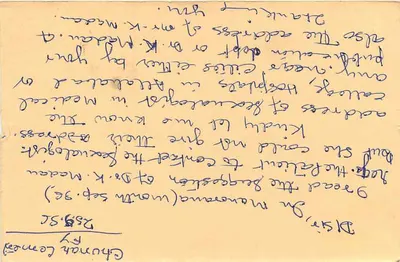 D/Sir,
In Manorama (month sep. 96),
I read the suggestion of Dr. K. Madan
the Patient to contact the Sexualogist.
but she could not give their address.
Kindly let me know the
address of Sexualogist in Medical
college Hospitals in Allahabad or
any near cities either by your
publication deptt or Dr K. Madan. &
also the address of Mr. K. Madan.
Thanking you.